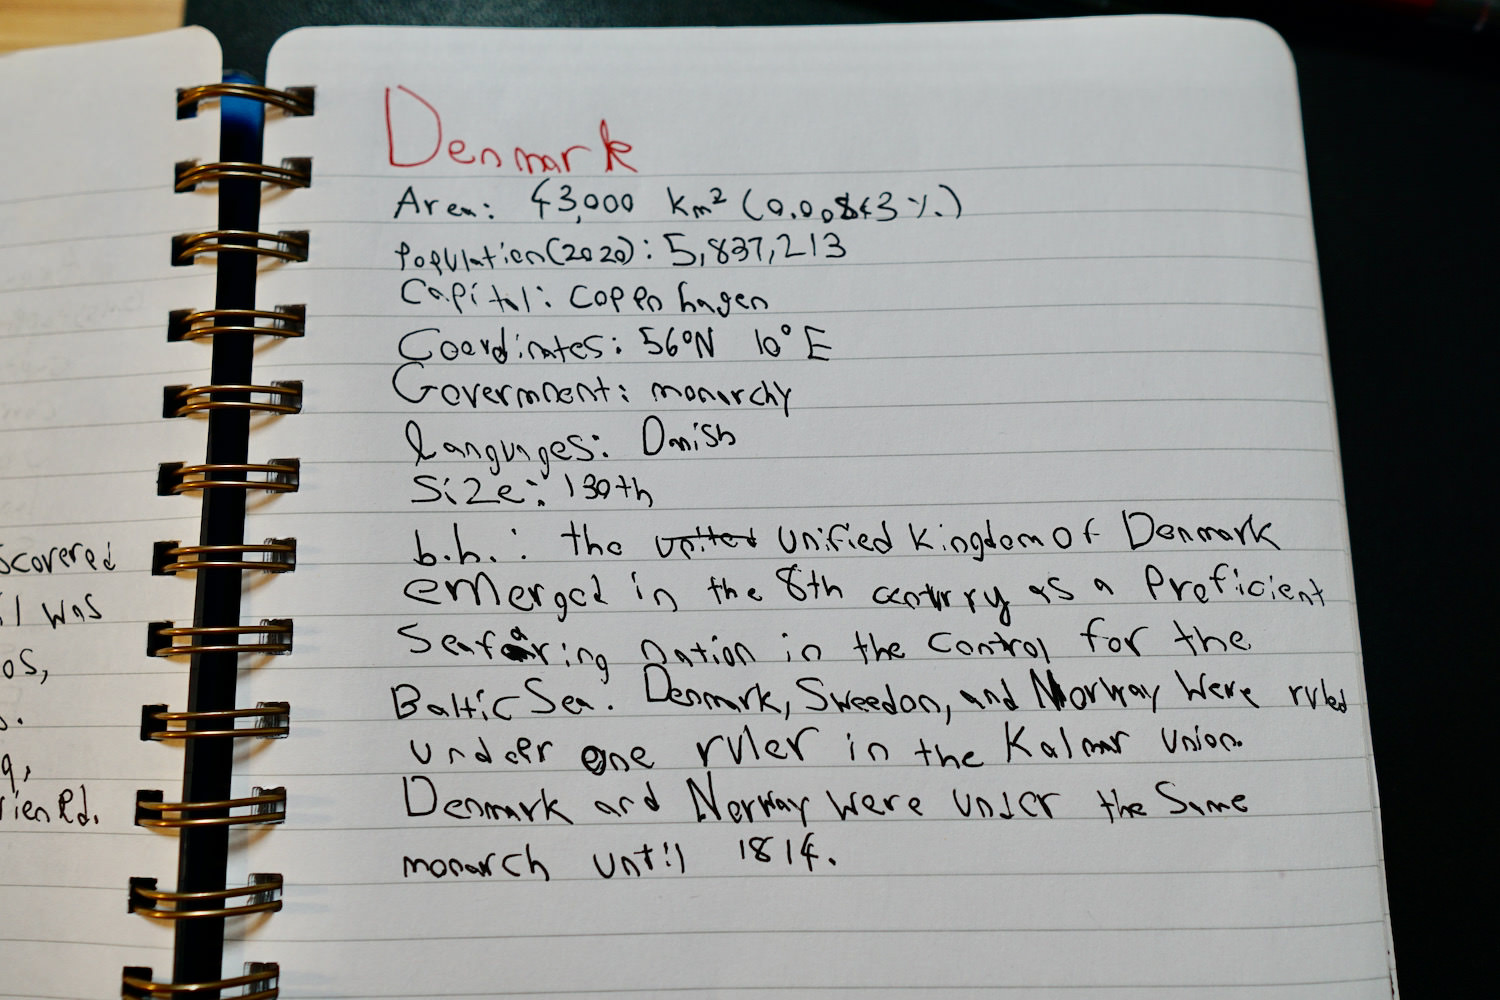 Denmark
Area: 43,000 km² (0.00843%)
Population(2020): 5,837,213
Capital: Coppenhagen
Coordinates: 56°N 10°E
Goverment: monarchy
languages: Danish
Size: 130th
b.h.: the united Unified Kingdom of Denmark
emerged in the 8th century as a Proficient
Seafaring nation in the Control for the
Baltic Sea. Denmark, Sweeden, and Norway Were ruled
under one ruler in the Kalmar Union.
Denmark and Norway Were Under the Same
monarch until 1814.
scovered
il was
os,
s.
q,
rienRd.